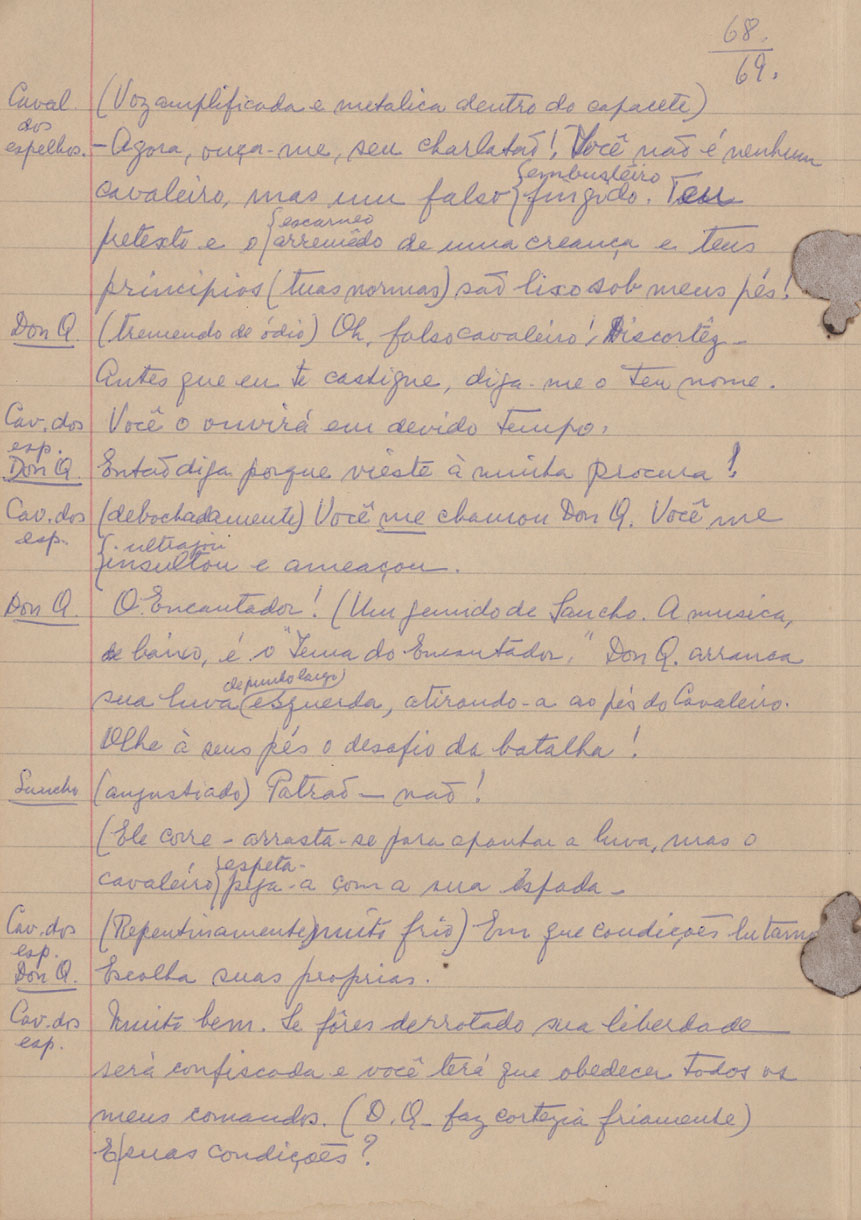 68.
69.
Caval. dos espelhos. (Voz amplificada e metalica dentro do capacete)
– Agora, ouça-me, seu charlatão! Você não é nenhum
cavaleiro, mas um falso {embusteiro fingido. Teu
pretexto e o {escarneo arremêdo de uma creança e teus
princípios (tuas normas) são lixo sob meus pés!
Don Q. (tremendo de ódio) Oh, falso cavaleiro! Discortêz –
Antes que eu te castigue, diga-me o teu nome.
Cav. dos esp. Você o ouvirá em devido tempo.
Don Q. Então diga porque viéste à minha procura!
Cav. dos esp. (debochadamente) Você me chamou Don Q. Você me
{ultrajou insultou e ameaçou.
Don Q. O Encantador! (Um gemido de Sancho. A musica,
de baixo, é o "Tema do Encantador." Don Q. arranca
sua luva (de punho largo) esquerda, atirando-a ao pés do Cavaleiro.
Olhe à seus pés o desafio da batalha!
Sancho (angustiado) Patrão – não!
(Ele corre – arrasta-se para apanhar a luva, mas o
cavaleiro {espeta- pega-a com a sua espada –
Cav. dos esp. (Repentinamente) muito frio) Em que condições lutamos
Don Q. Escolha suas proprias.
Cav. dos esp. Muito bem. Se fôres derrotado sua liberdade
será confiscada e você terá que obedecer todos os
meus comandos. (D. Q. faz cortezia friamente)
E suas condições?